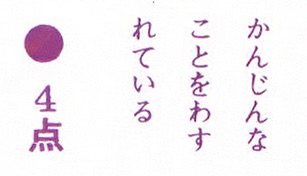 かんじんな
ことをわす
れている
●4点